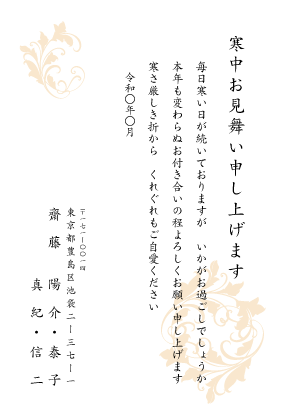 寒中お見舞い申し上げます
毎日寒い日が続いておりますが　いかがお過ごしでしょうか
本年も変わらぬお付き合いの程よろしくお願い申し上げます
寒さ厳しき折から　くれぐれもご自愛ください
令和〇年〇月
〒一七一-〇〇一四
東京都豊島区池袋二-三七-一
齋藤　陽介・泰子
真紀・信二